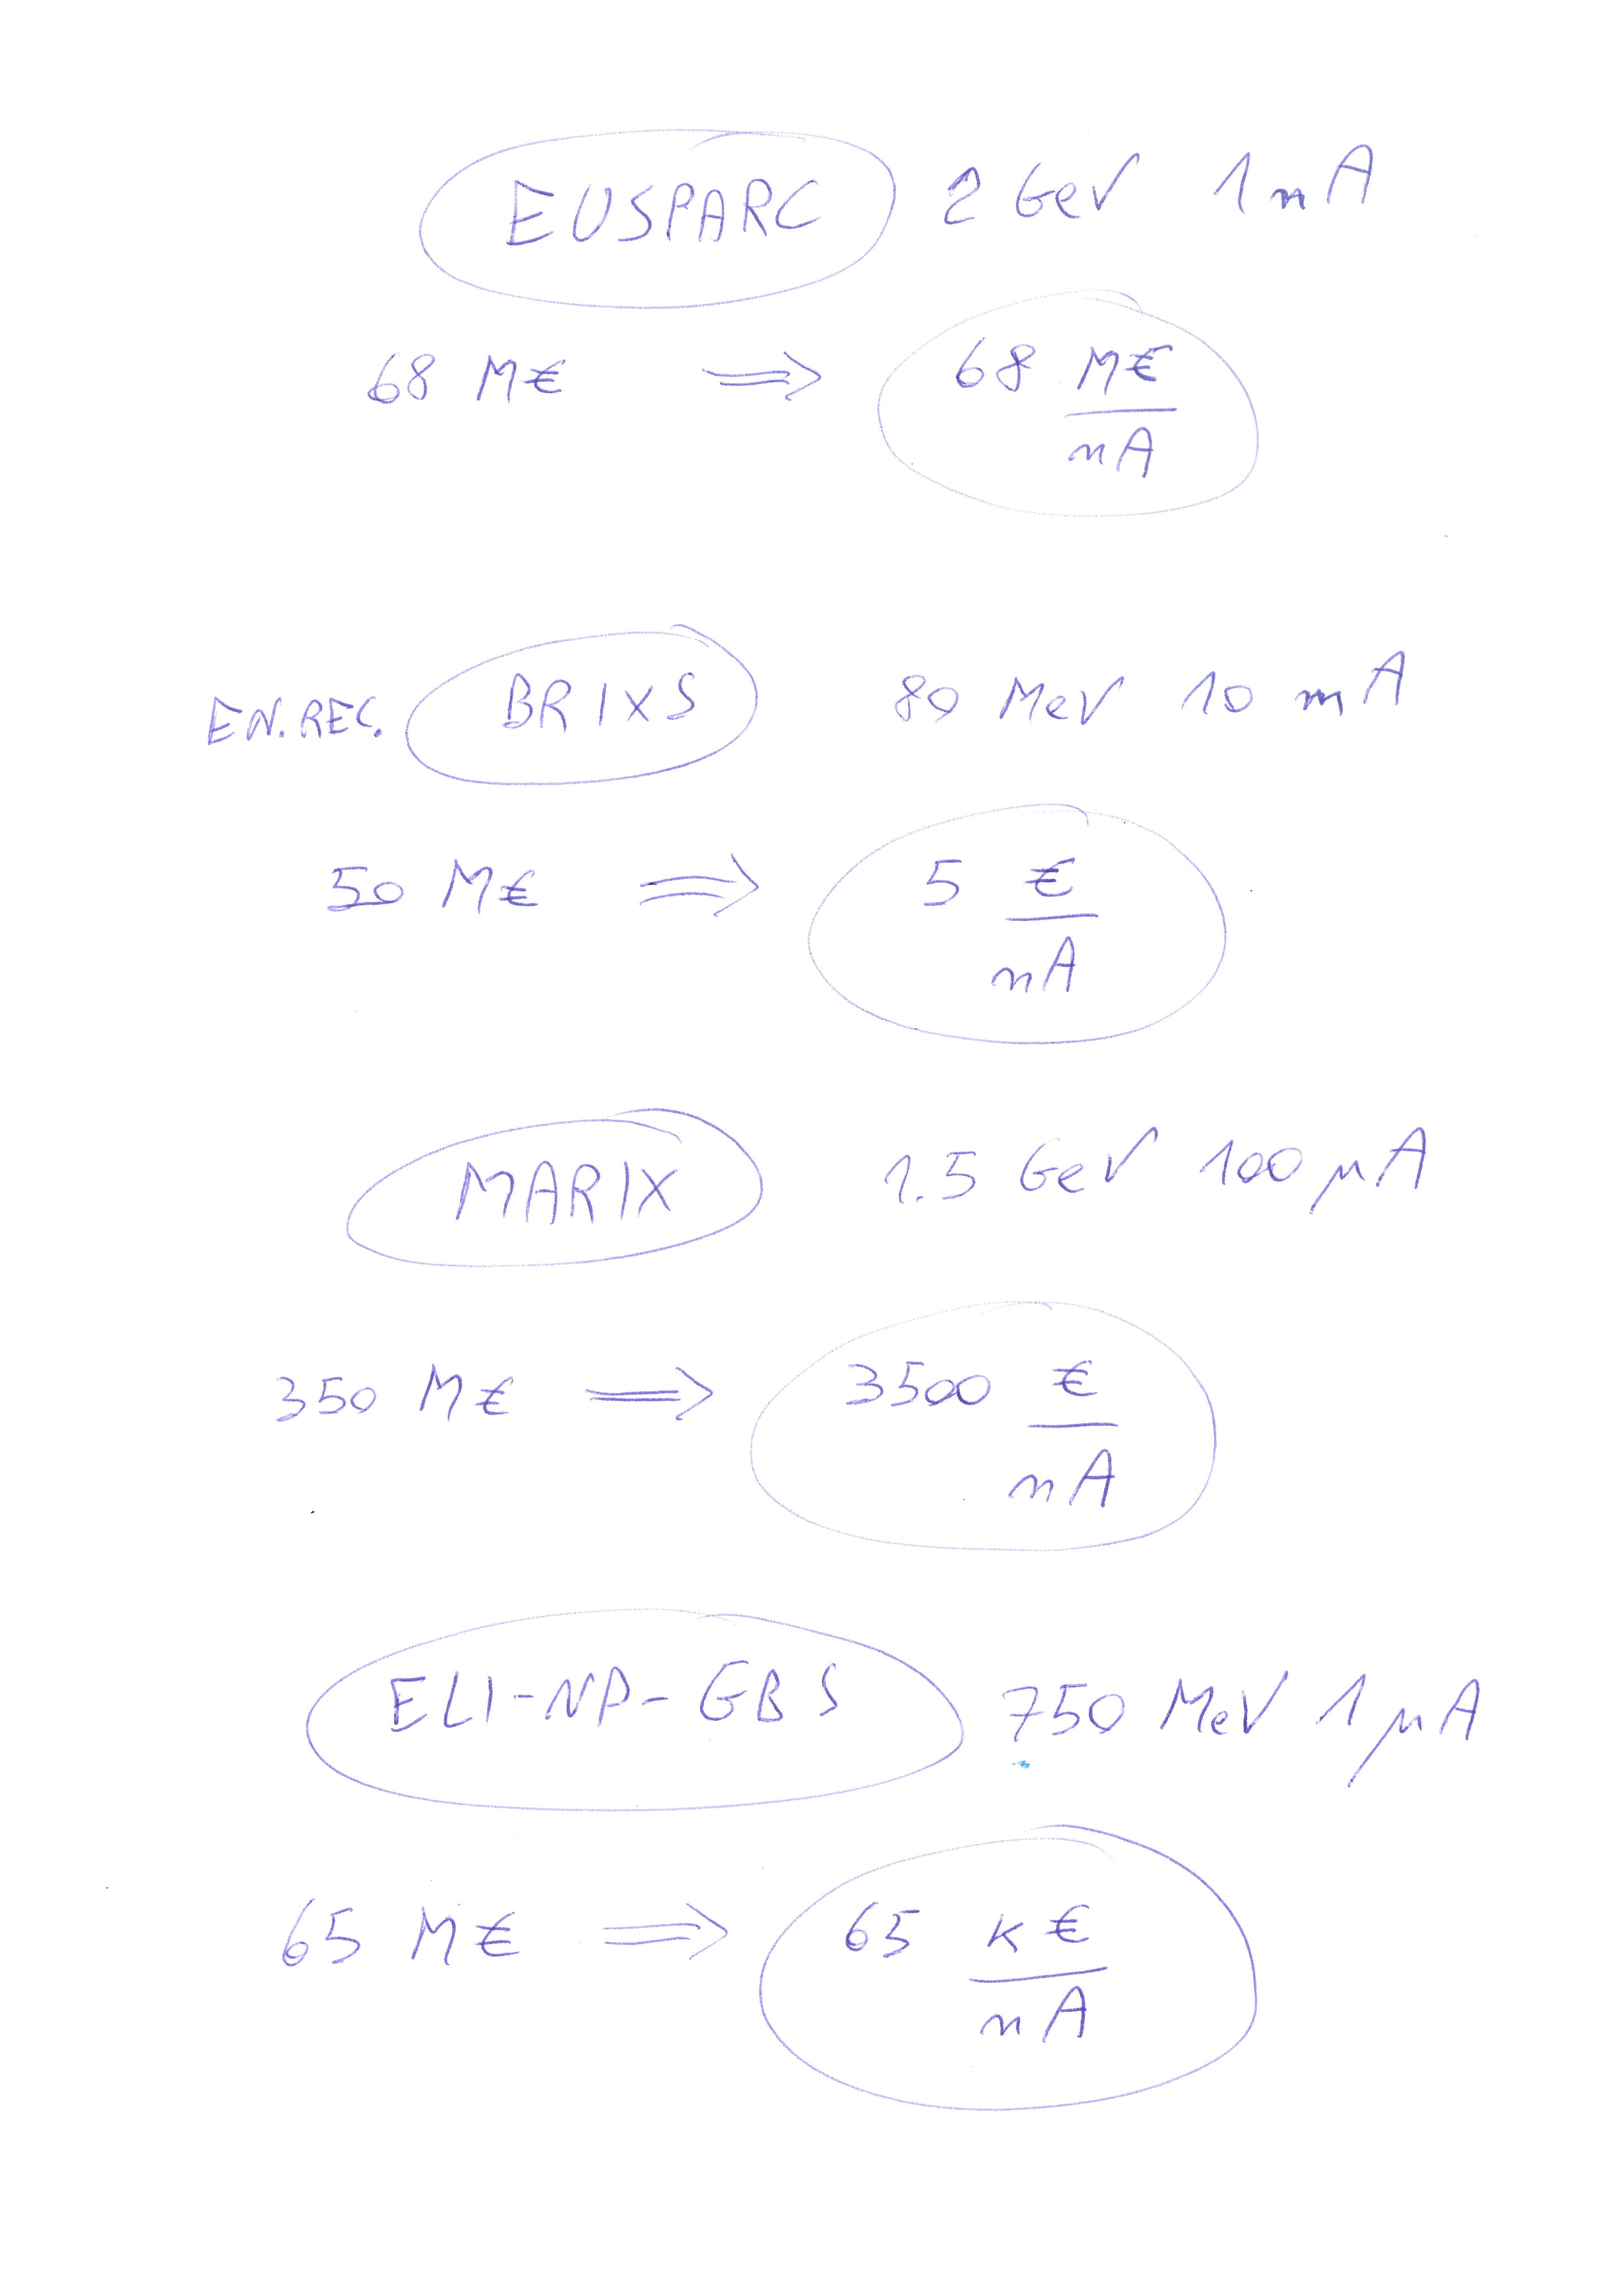 EUSPARC 2 GeV 1 nA
68 M€ ⇒ 68 M€
nA
EN.REC. BRIXS 80 MeV 10 mA
50 M€ ⇒ 5 €
nA
MARIX 1.5 GeV 100 μA
350 M€ ⇒ 3500 €
nA
ELI-NP-GBS 750 MeV 1 μA
65 M€ ⇒ 65 K€
nA